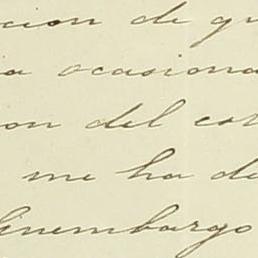 cion de gu
a ocasiona
on del con
me ha de
Sinembargo